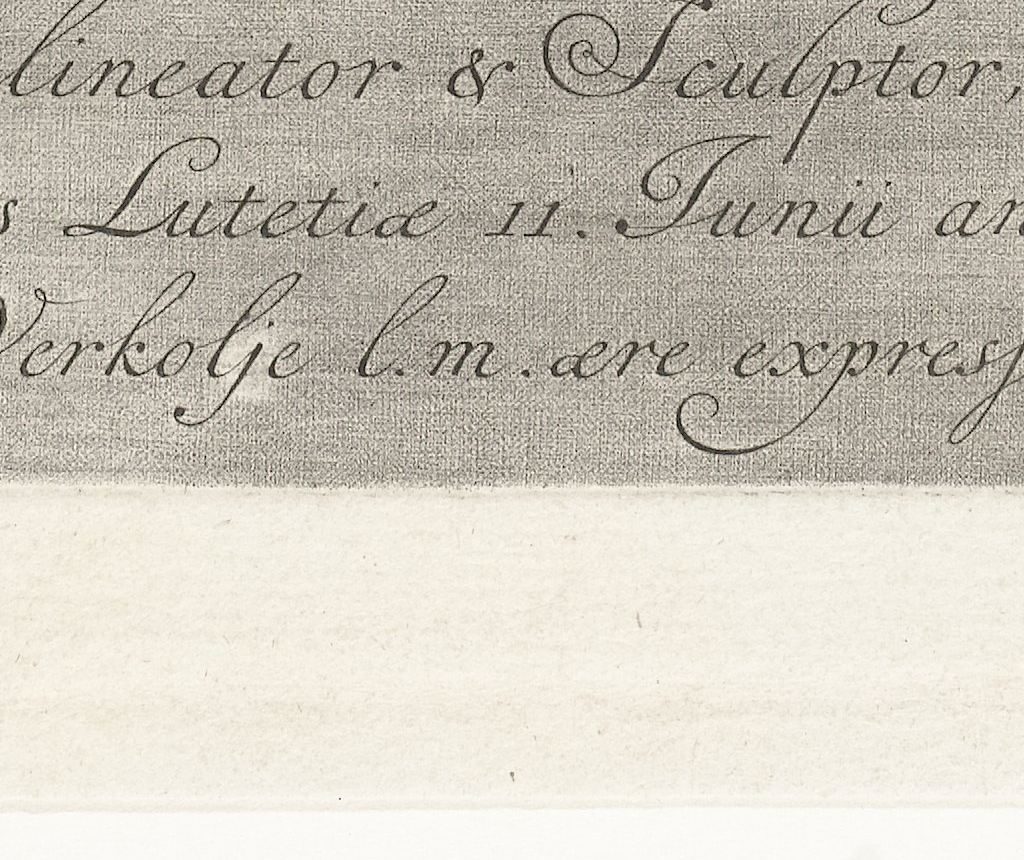 lineator & Sculptor,
s Lutetiæ 11. Junii an
Verkolje l.m. ære express